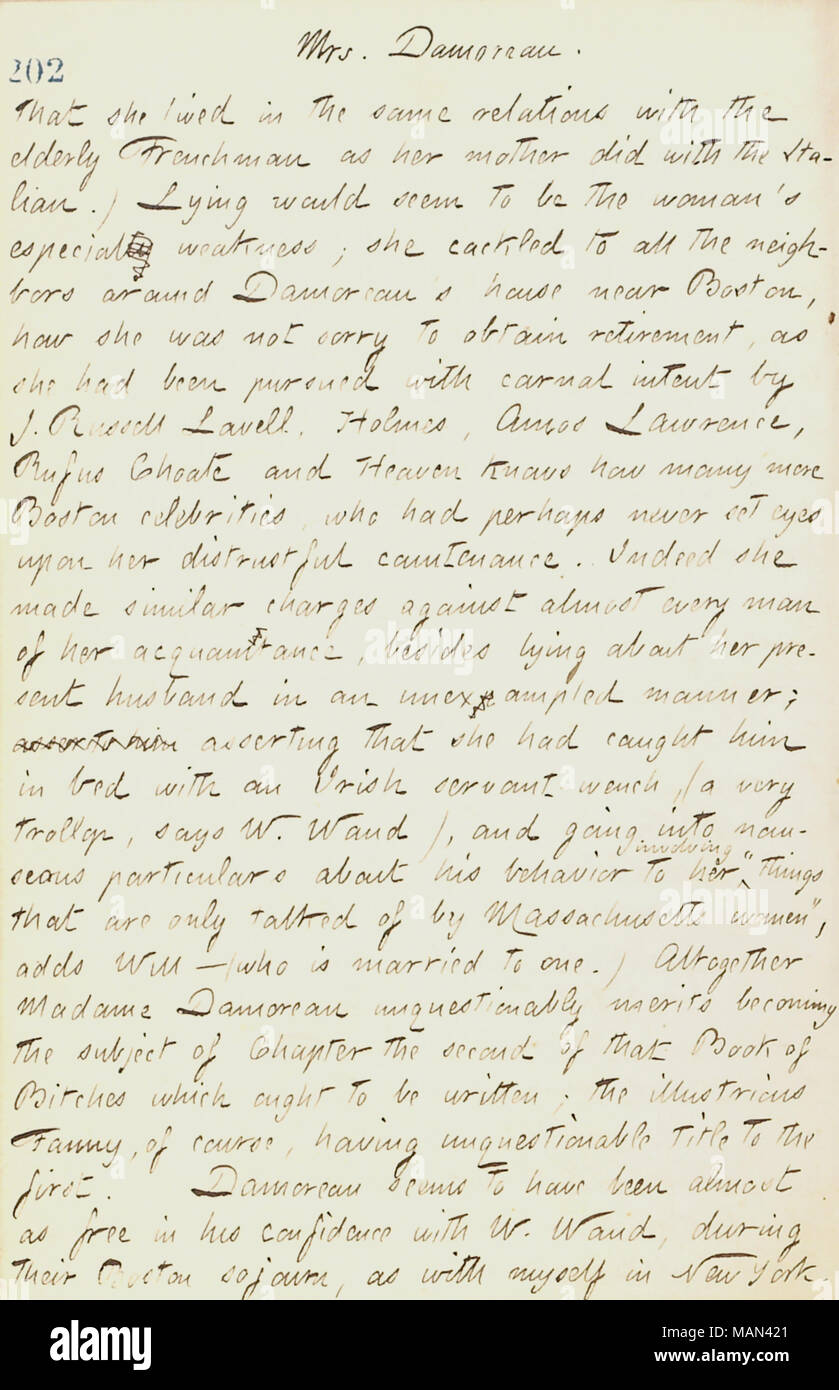 Mrs. Damoreau.
202
that she lived in the same relations with the
elderly Frenchman as her mother did with the Ita-
lian.) Lying would seem to be the woman's
especial weakness; she cackled to all the neigh-
bors around Damoreau's house near Boston,
how she was not sorry to obtain retirement, as
she had been pursued with carnal intent by
J. Russell Lowell, Holmes, Amos Lawrence,
Rufus Choate and Heaven knows how many more
Boston celebrities, who had perhaps never set eyes
upon her distrustful countenance. Indeed she
made similar charges against almost every man
of her acquaintance, besides lying about her pre-
sent husband in an unexampled manner;
assert to him asserting that she had caught him
in bed with an Irish servant wench, (a very
trollop, says W. Waud), and going into nau-
seous particulars about his behavior to her, involving "things
that are only talked of by Massachusetts women",
adds Will — (who is married to one.) Altogether
Madame Damoreau unquestionably merits becoming
the subject of Chapter the second of that Book of
Bitches which ought to be written; the illustrious
Fanny, of course, having unquestionable title to the
first. Damoreau seems to have been almost
as free in his confidence with W. Waud, during
their Boston sojourn, as with myself in New York.
alamy
Image ID: MAN421
www.alamy.com